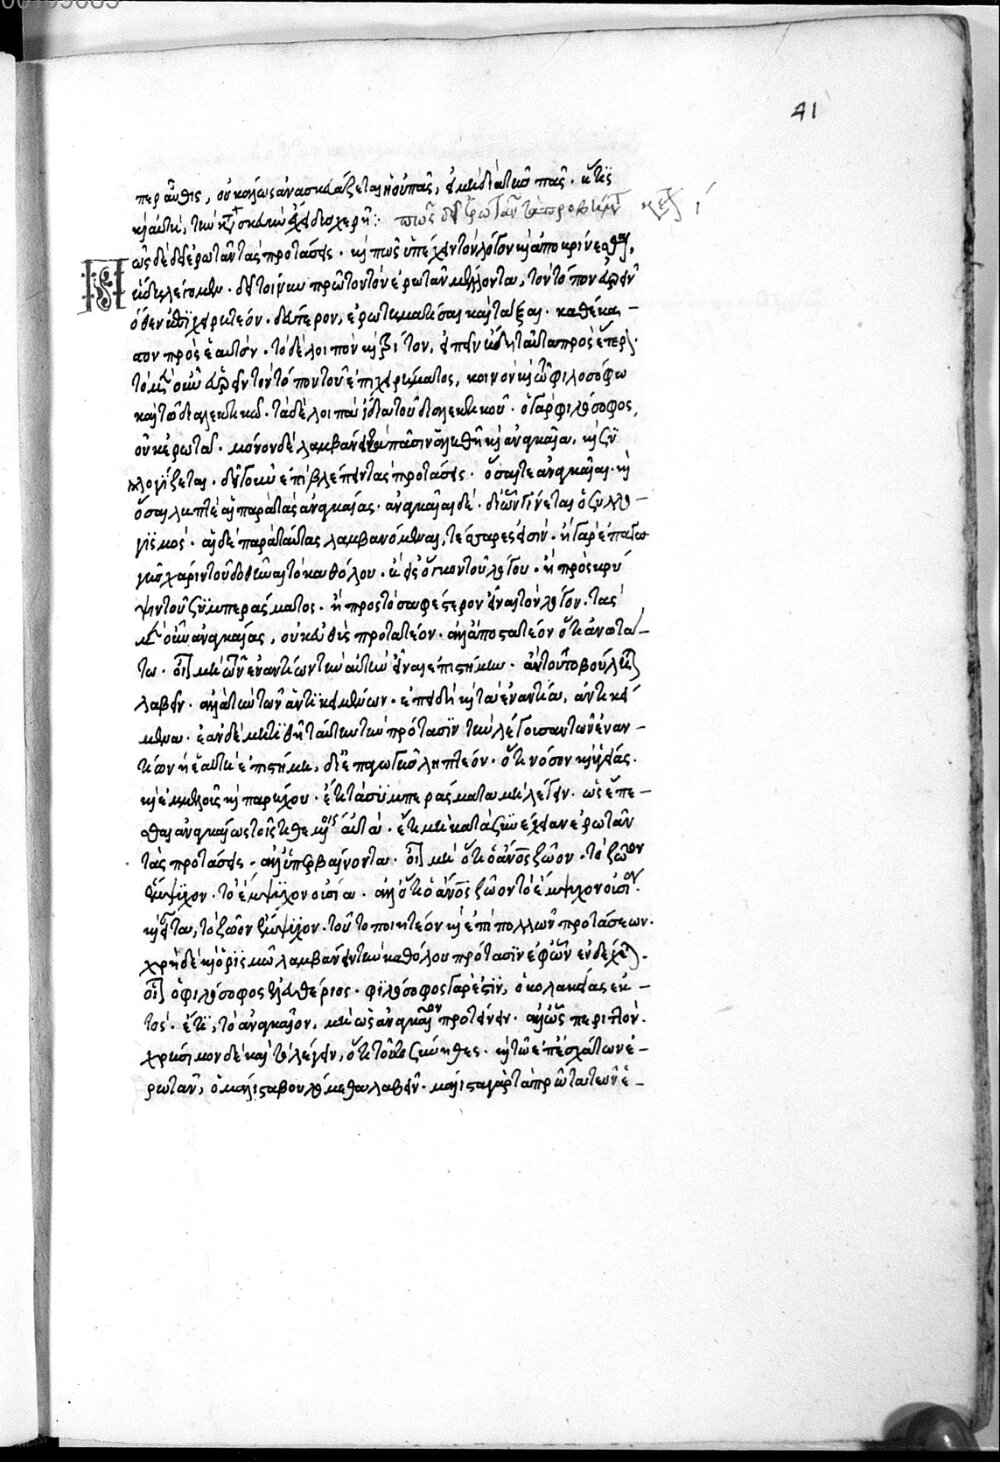 41
περ αὖθις, οὐκ ἀνασκευάζεται
καὶ αὐτὴ, τὴν κατασκευὴν ἔχει δυσχερῆ: πῶς δεῖ ἐρωτᾶν τὰ προβλήματα
πῶς δὲ δεῖ ἐρωτᾶν τὰς προτάσεις. καὶ πῶς ὑπέχειν τὸν λόγον καὶ ἀποκρίνεσθαι,
δεῖ τοίνυν πρῶτον τὸν ἐρωτᾶν μέλλοντα, τὸν τόπον εὑρεῖν
ὅθεν ἐπιχειρητέον. δεύτερον, ἐρωτηματίσαι καὶ τάξαι. καθέκα-
στον πρὸς ἑαυτόν. τὸ δὲ λοιπὸν καὶ τρίτον, εἰπεῖν ἤδη ταῦτα πρὸς ἕτερον.
τὸ μὲν οὖν εὑρεῖν τὸν τόπον τοῦ ἐπιχειρήματος, κοινὸν καὶ τῷ φιλοσόφῳ
καὶ τῷ διαλεκτικῷ. τὰ δὲ λοιπὰ ἴδια τοῦ διαλεκτικοῦ. ὁ γὰρ φιλόσοφος,
οὐκ ἐρωτᾷ. μόνον δὲ λαμβάνει ἀληθῆ καὶ ἀναγκαῖα, καὶ συ
λλογίζεται. δεῖ οὖν ἐπιβλέπειν τὰς προτάσεις. ὅσαι τε ἀναγκαῖαι. καὶ
ὅσαι ληπτέαι παρὰ τὰς ἀναγκαίας. ἀναγκαῖαι δὲ. δι' ὧν γίνεται ὁ συλλο-
γισμός. αἱ δὲ παρὰ ταύτας λαμβανόμεναι, τέσσαρές εἰσιν. ἢ γὰρ ἐπαγω
γῆς χάριν τοῦ δοθῆναι τὸ καθόλου. ἢ εἰς ὄγκον τοῦ λόγου. ἢ πρὸς κρύ
ψιν τοῦ συμπεράσματος. ἢ πρὸς τὸ σαφέστερον εἶναι τὸν λόγον. τὰς
μὲν οὖν ἀναγκαίας, οὐκ εὐθὺς προτατέον. ἀλλ' ἀποστατέον ὅτι ἀνωτά-
τω. οἷον μὴ τῶν ἐναντίων τὴν αὐτὴν εἶναι ἐπιστήμην. ἂν τοῦτο βούληται
λαβεῖν. ἀλλὰ τὴν τῶν ἀντικειμένων. ἐπειδὴ καὶ τὰ ἐναντία, ἀντικεί
μενα. ἐὰν δὲ μὴ τιθῇ ταύτην τὴν πρότασιν τὴν λέγουσαν τῶν ἐναν-
τίων ἡ αὐτὴ ἐπιστήμη, δι' ἐπαγωγῆς ληπτέον. ὅτι νόσου καὶ ὑγείας.
καὶ ἐμμελοῦς καὶ παρὰ μέλους. ἔτι τὰ συμπεράσματα μὴ λέγειν. ὡς ἕπε-
σθαι ἀναγκαίως τοῖς τεθεῖσιν αὐτά. ἔτι μὴ κατὰ συνέχειαν ἐρωτᾶν
τὰς προτάσεις. ἀλλ' ὑπερβαίνοντα. οἷον μὴ ὅτι ὁ ἄνθρωπος ζῶον. τὸ ζῶον
ἔμψυχον. τὸ ἔμψυχον οὐσία. ἀλλ' ὅτι ὁ ἄνθρωπος ζῶον τὸ ἔμψυχον οὐσία.
καὶ εἶτα, τὸ ζῶον ἔμψυχον. τοῦτο ποιητέον καὶ ἐπὶ πολλῶν προτάσεων.
χρὴ δὲ καὶ ὁρισμῷ λαμβάνειν τὴν καθόλου πρότασιν ἐφ' ὧν ἐνδέχεται.
οἷον ὁ φιλόσοφος ἐλευθέριος. φιλόσοφος γάρ ἐστιν, ὁ κολακείας ἐκ-
τός. ἔτι, τὸ ἀναγκαῖον, μὴ ὡς ἀναγκαῖον προτείνειν. ἀλλ' ὡς περιττόν.
χρήσιμον δὲ καὶ τὸ λέγειν, ὅτι τοῦτο σύνηθες. καὶ τὸ ἐπ' ἐσχάτων ἐ-
ρωτᾶν, ὃ μάλιστα βουλόμεθα λαβεῖν. μάλιστα γὰρ τὰ πρῶτα τῶν ἐ-